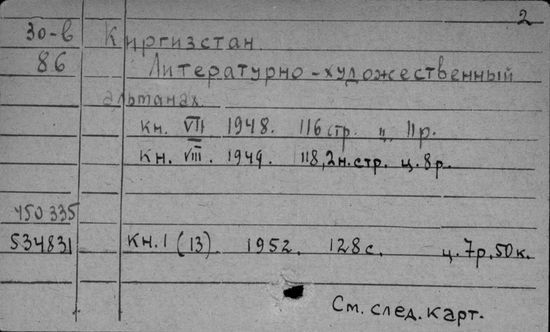 2
30-в Киргизстан
86 Литературно-художественный
альманах.
Кн. VII 1948. 116 стр. ц. 11р.
Кн. VIII. 1949. 118,2н.стр. ц. 8р.
450335
534831 Кн.1 (13). 1952. 128с. ц. 7р.50к.
См. след. карт.